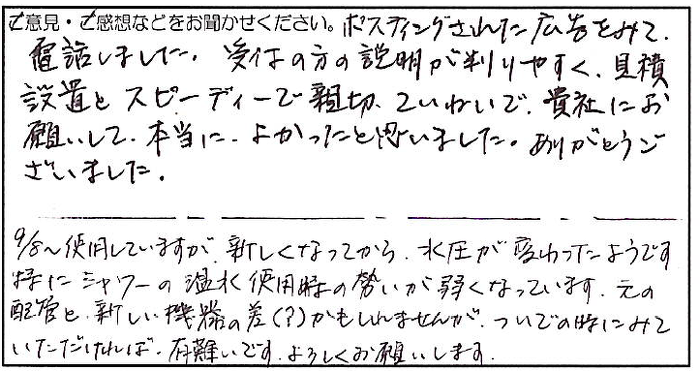 ご意見・ご感想などをお聞かせください。ポスティングされた広告をみて、
電話しました。受付の方の説明が判りやすく、見積
設置とスピーディーで親切、ていねいで、貴社にお
願いして、本当に、よかったと思いました。ありがとうご
ざいました。
9/8〜使用していますが、新しくなってから、水圧が変わったようです
特にシャワーの温水使用時の勢いが弱くなっています。元の
配管と、新しい機器の差(?)かもしれませんが、ついでの時にみて
いただければ、有難いです。よろしくお願いします。